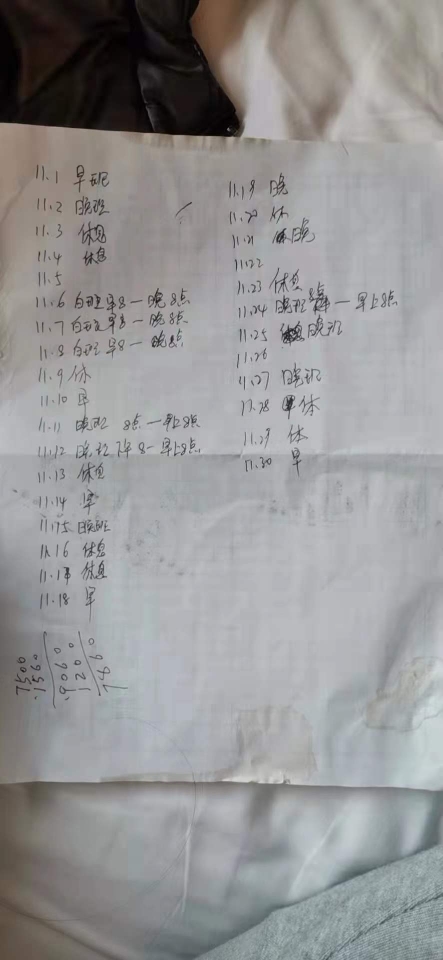 11.1 早班
11.2 晚班
11.3 休息
11.4 休息
11.5
11.6 白班早8一晚8点
11.7 白班早8一晚8点
11.8 白班早8一晚8点
11.9 休
11.10 早
11.11 晚班 8点一早上8点
11.12 晚班 下午8一早上8点
11.13 休息
11.14 早
11.15 晚班
11.16 休息
11.17 休息
11.18 早
11.19 晚
11.20 休
11.21 晚
11.22
11.23 休息
11.24 晚班 8点一早上8点
11.25 晚班
11.26
11.27 晚班
11.28 休
11.29 休
11.30 早
7500
1560